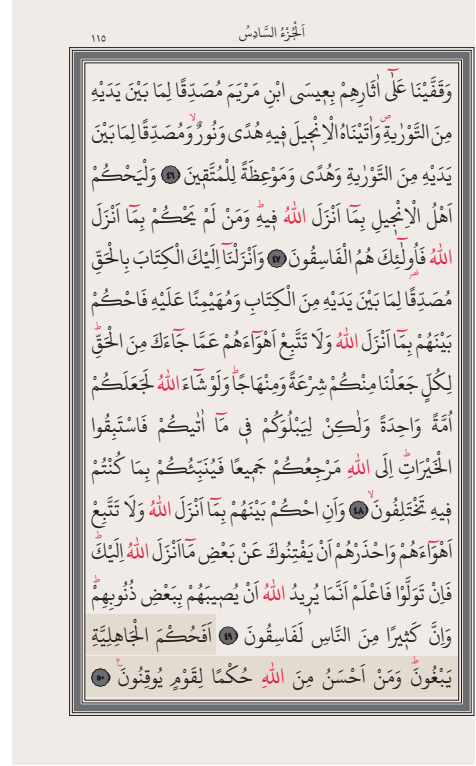 اَلْجُزْءُ السَّادِسُ
١١٥
وَقَفَّيْنَا عَلٰٓى اٰثَارِهِمْ بِعٖيسَى ابْنِ مَرْيَمَ مُصَدِّقًا لِمَا بَيْنَ يَدَيْهِ
مِنَ التَّوْرٰيةِۖ وَاٰتَيْنَاهُ الْاِنْجٖيلَ فٖيهِ هُدًى وَنُورٌۙ وَمُصَدِّقًا لِمَا بَيْنَ
يَدَيْهِ مِنَ التَّوْرٰيةِ وَهُدًى وَمَوْعِظَةً لِلْمُتَّقٖينَ ﴿٤٦﴾ وَلْيَحْكُمْ
اَهْلُ الْاِنْجٖيلِ بِمَٓا اَنْزَلَ اللّٰهُ فٖيهِؕ وَمَنْ لَمْ يَحْكُمْ بِمَٓا اَنْزَلَ
اللّٰهُ فَاُو۬لٰٓئِكَ هُمُ الْفَاسِقُونَ ﴿٤٧﴾ وَاَنْزَلْنَٓا اِلَيْكَ الْكِتَابَ بِالْحَقِّ
مُصَدِّقًا لِمَا بَيْنَ يَدَيْهِ مِنَ الْكِتَابِ وَمُهَيْمِنًا عَلَيْهِ فَاحْكُمْ
بَيْنَهُمْ بِمَٓا اَنْزَلَ اللّٰهُ وَلَا تَتَّبِعْ اَهْوَٓاءَهُمْ عَمَّا جَٓاءَكَ مِنَ الْحَقِّؕ
لِكُلٍّ جَعَلْنَا مِنْكُمْ شِرْعَةً وَمِنْهَاجًاؕ وَلَوْ شَٓاءَ اللّٰهُ لَجَعَلَكُمْ
اُمَّةً وَاحِدَةً وَلٰكِنْ لِيَبْلُوَكُمْ فٖى مَٓا اٰتٰيكُمْ فَاسْتَبِقُوا
الْخَيْرَاتِؕ اِلَى اللّٰهِ مَرْجِعُكُمْ جَمٖيعًا فَيُنَبِّئُكُمْ بِمَا كُنْتُمْ
فٖيهِ تَخْتَلِفُونَۙ ﴿٤٨﴾ وَاَنِ احْكُمْ بَيْنَهُمْ بِمَٓا اَنْزَلَ اللّٰهُ وَلَا تَتَّبِعْ
اَهْوَٓاءَهُمْ وَاحْذَرْهُمْ اَنْ يَفْتِنُوكَ عَنْ بَعْضِ مَٓا اَنْزَلَ اللّٰهُ اِلَيْكَؕ
فَاِنْ تَوَلَّوْا فَاعْلَمْ اَنَّمَا يُرٖيدُ اللّٰهُ اَنْ يُصٖيبَهُمْ بِبَعْضِ ذُنُوبِهِمْؕ
وَاِنَّ كَثٖيرًا مِنَ النَّاسِ لَفَاسِقُونَ ﴿٤٩﴾ اَفَحُكْمَ الْجَاهِلِيَّةِ
يَبْغُونَؕ وَمَنْ اَحْسَنُ مِنَ اللّٰهِ حُكْمًا لِقَوْمٍ يُوقِنُونَ۟ ﴿٥٠﴾